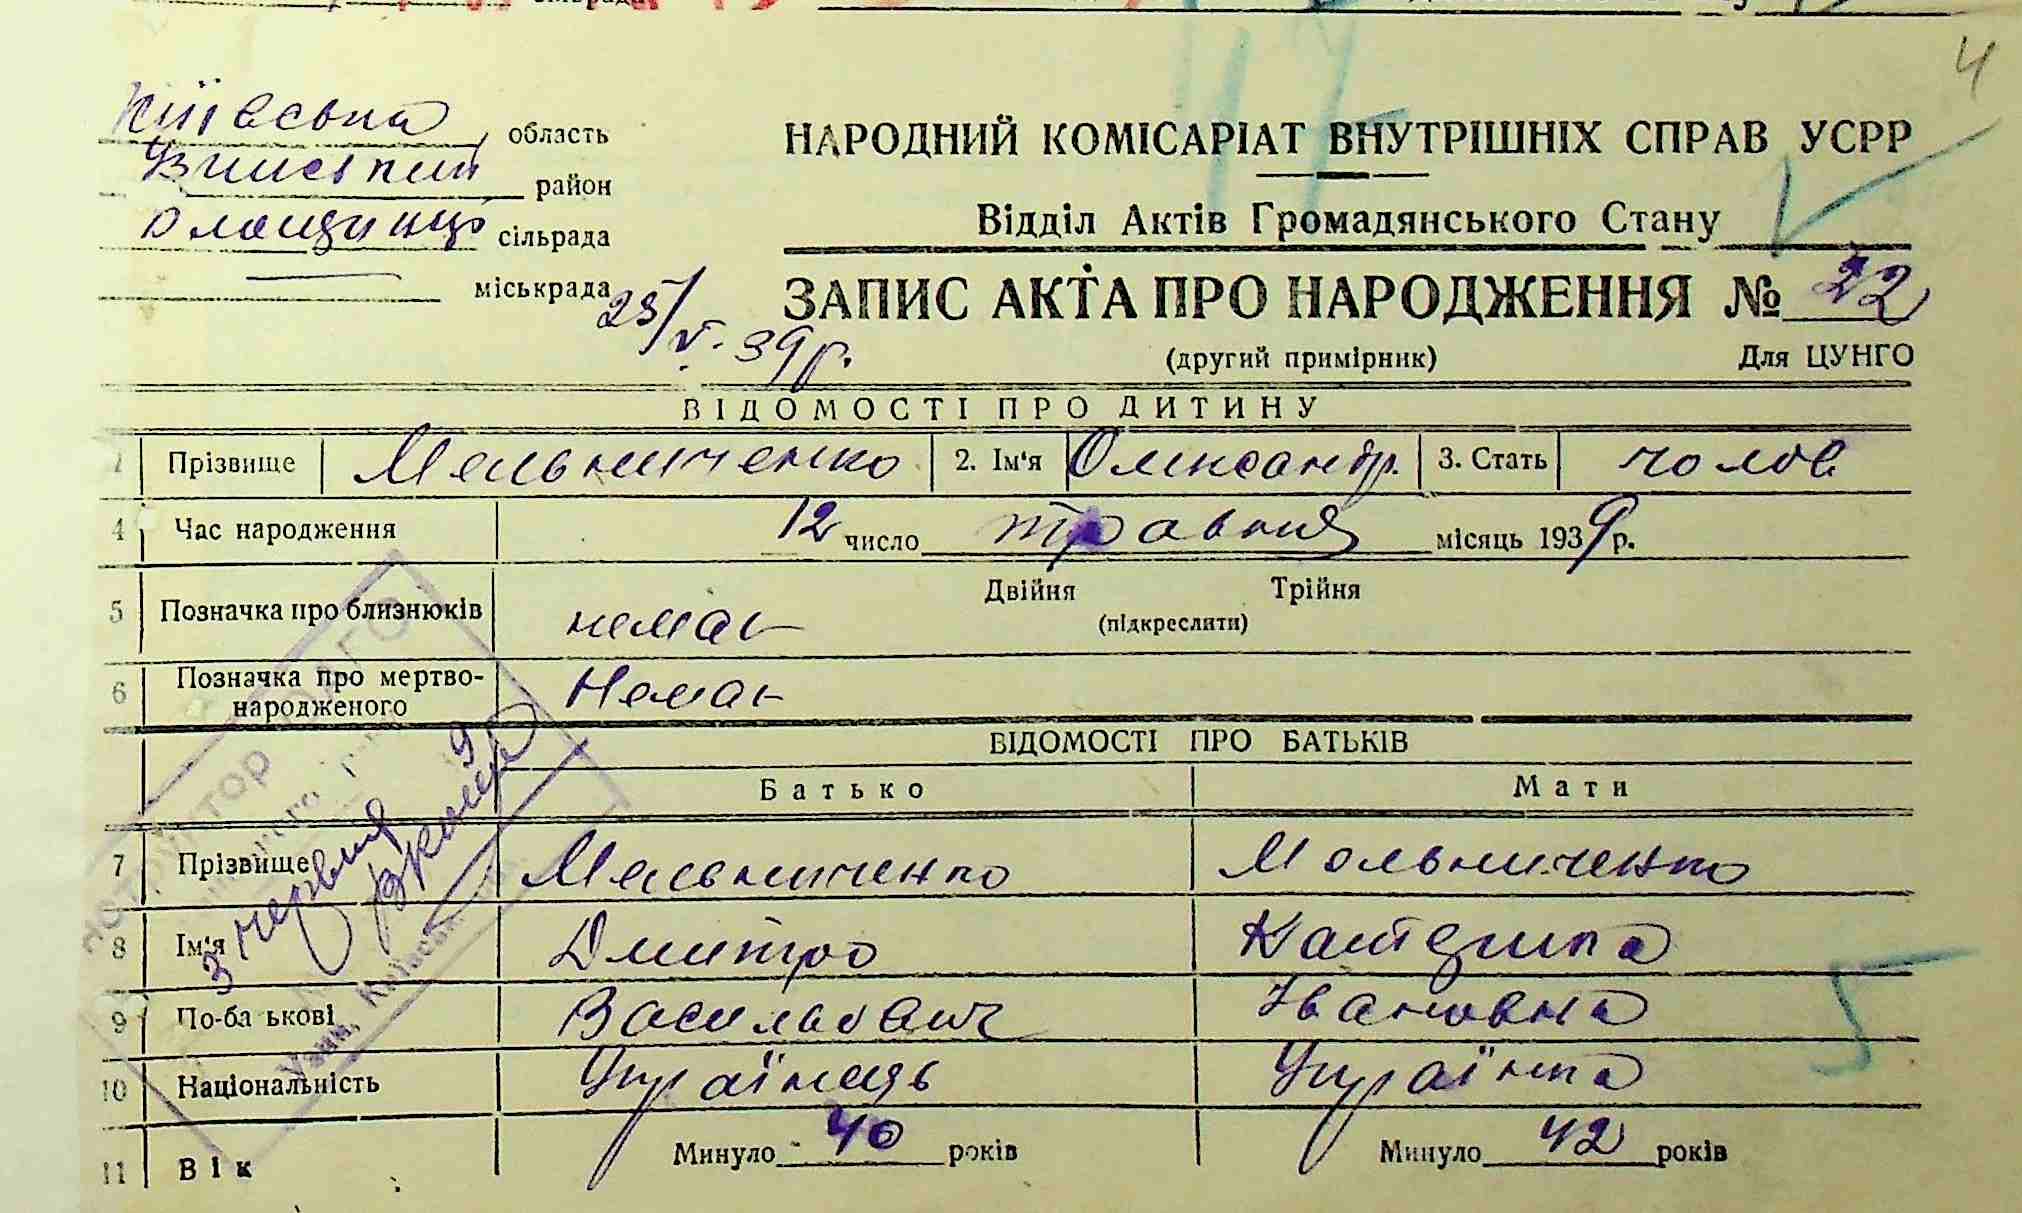 Київська область
район
сільрада
міськрада
НАРОДНИЙ КОМІСАРІАТ ВНУТРІШНІХ СПРАВ УСРР
Відділ Актів Громадянського Стану
25/V.39р.
ЗАПИС АКТА ПРО НАРОДЖЕННЯ № 22
(другий примірник) Для ЦУНГО
4
ВІДОМОСТІ ПРО ДИТИНУ
1 Прізвище Мельниченко 2. Ім'я Олександр. 3. Стать чолов
4 Час народження 12 число травня місяць 1939 р.
5 Позначка про близнюків немає Двійня Трійня
(підкреслити)
6 Позначка про мертво-
народженого Немає
ВІДОМОСТІ ПРО БАТЬКІВ
Батько Мати
7 Прізвище Мельниченко Мельниченко
8 Ім'я Дмитро Катерина
9 По-ба ькові Васильович Івановна
10 Національність Українець Українка
11 Вік Минуло 40 років Минуло 42 років
3 червня
5